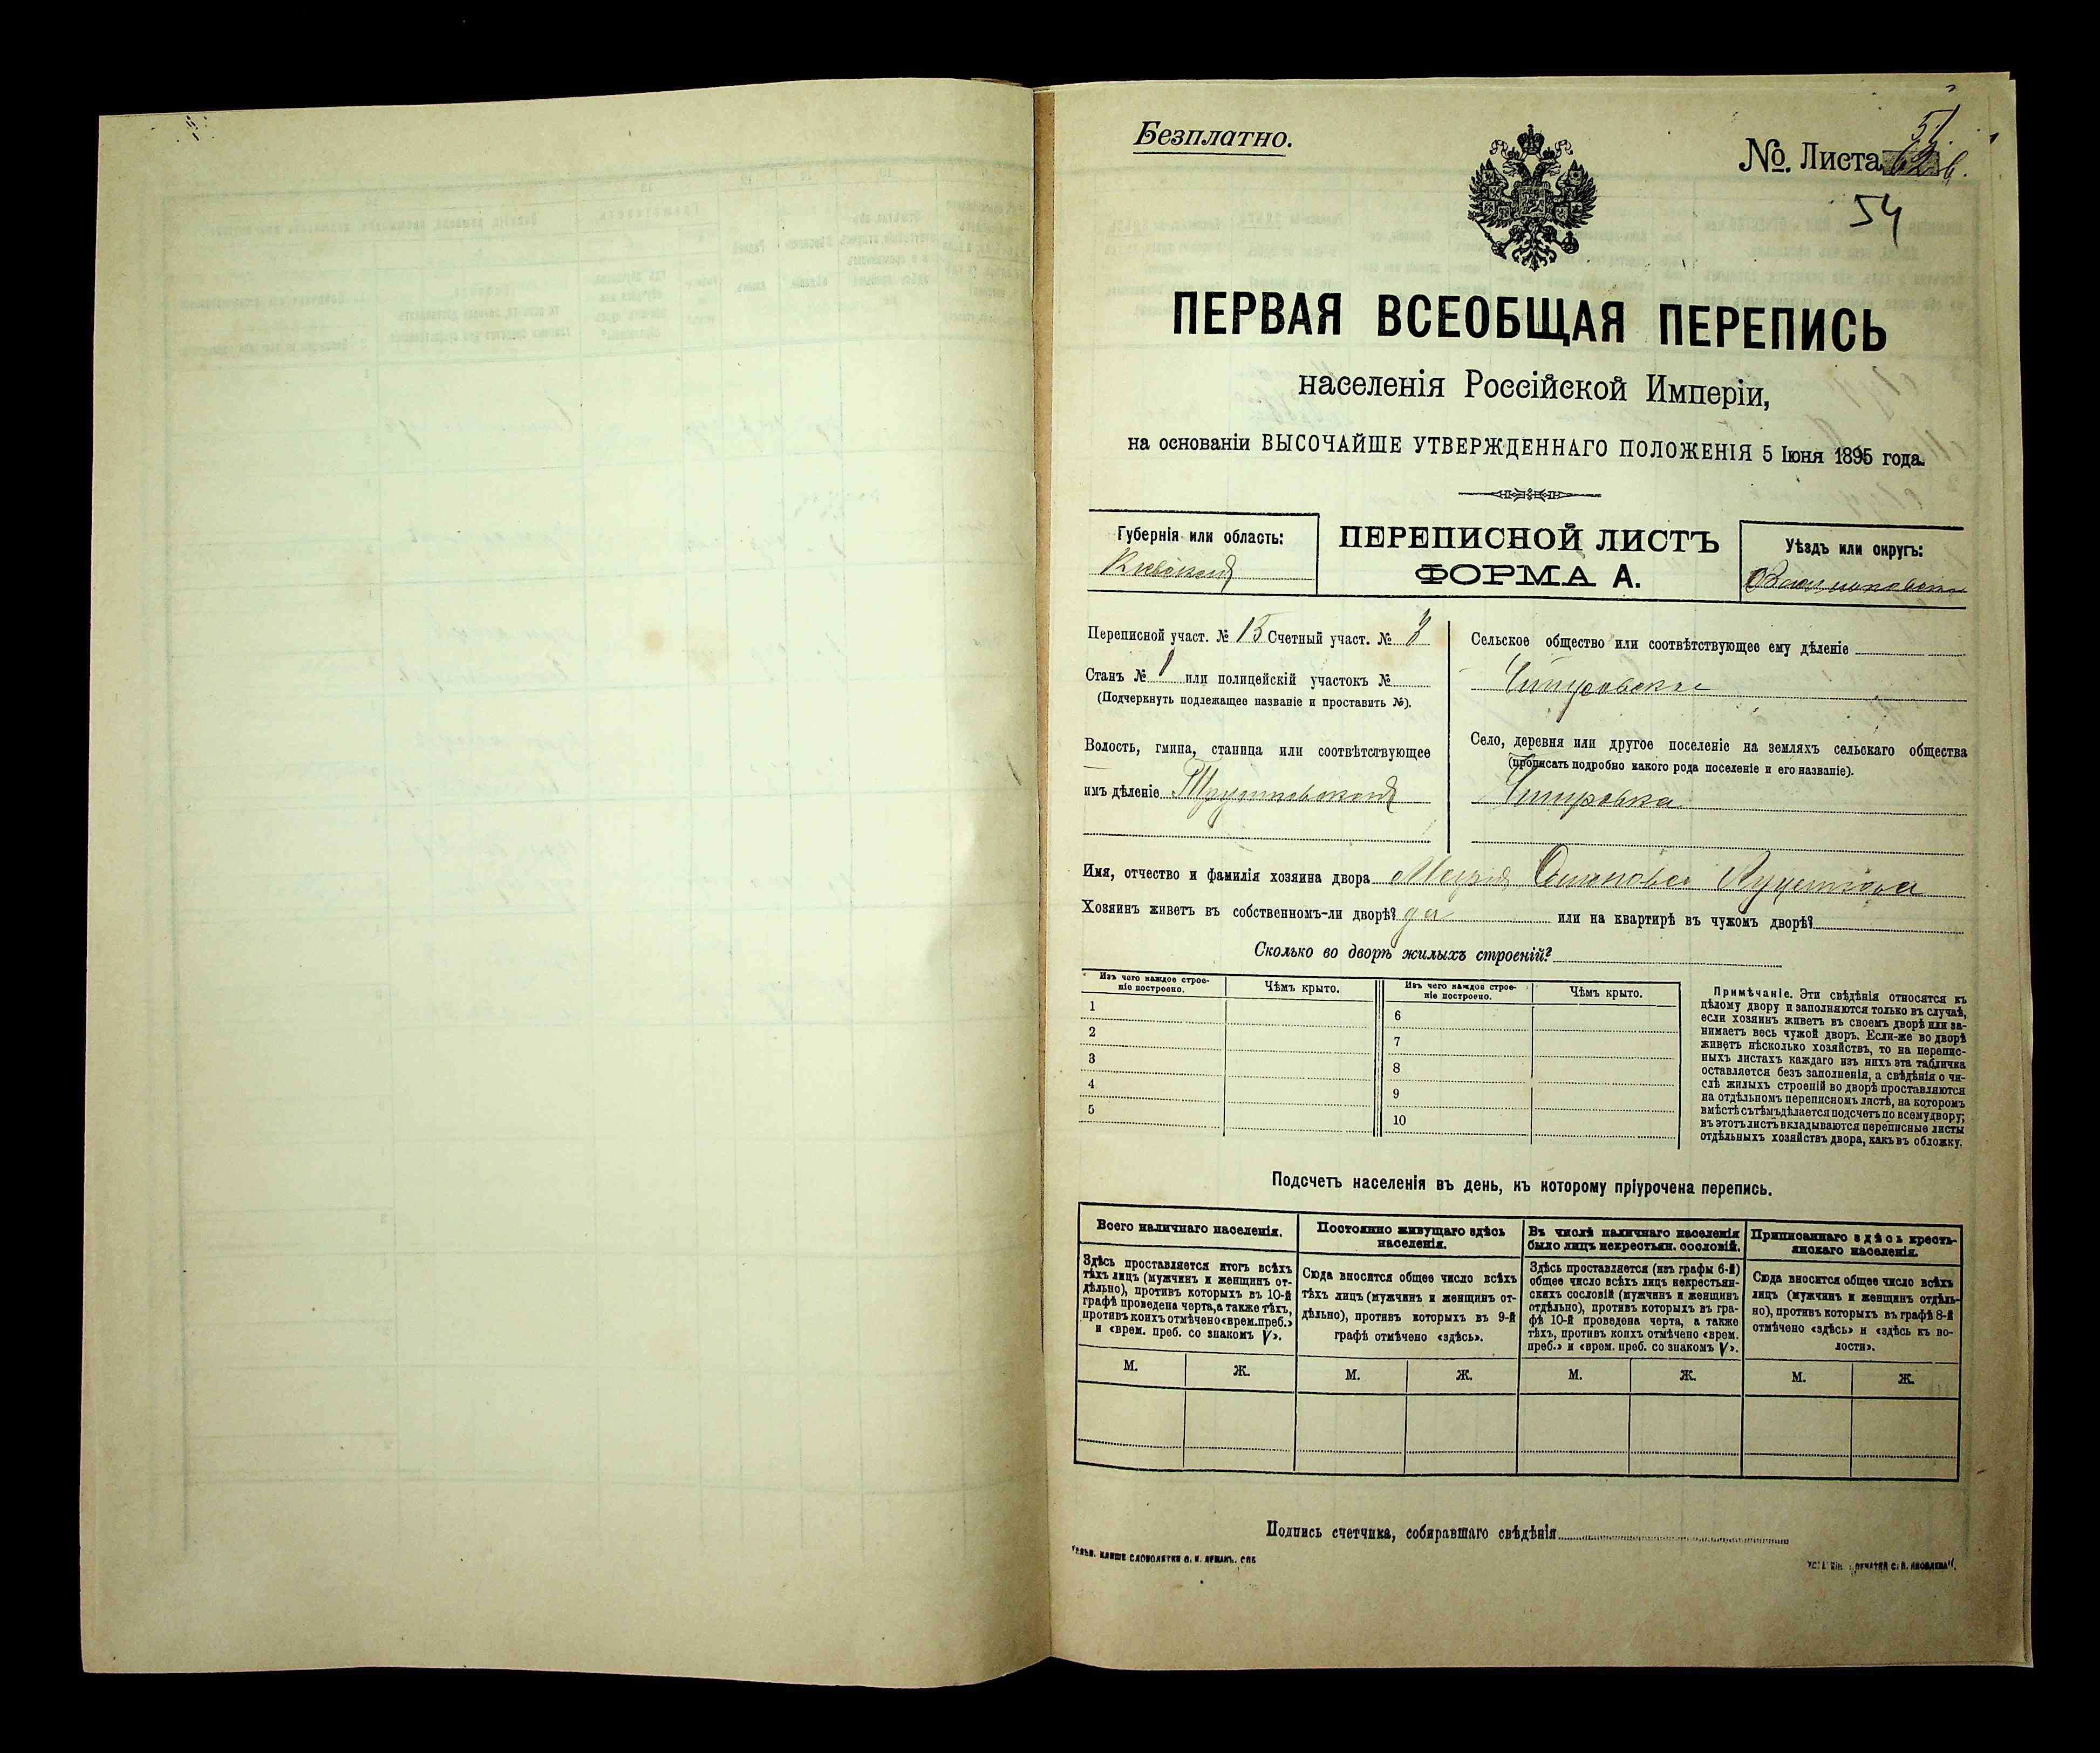 Безплатно.
№. Листа 51
54
ПЕРВАЯ ВСЕОБЩАЯ ПЕРЕПИСЬ
населенія Россійской Имперіи,
на основаніи ВЫСОЧАЙШЕ УТВЕРЖДЕННАГО ПОЛОЖЕНІЯ 5 Іюня 1895 года.
Губернія или область:
Кіевская
ПЕРЕПИСНОЙ ЛИСТЪ
ФОРМА А.
Уѣздъ или округъ:
Переписной участ. № 15 Счетный участ. № 3
Станъ № 1 или полицейскій участокъ №
(Подчеркнуть подлежащее названіе и проставить №).
Волость, гмина, станица или соотвѣтствующее
имъ дѣленіе
Сельское общество или соотвѣтствующее ему дѣленіе
Село, деревня или другое поселеніе на земляхъ сельскаго общества
(прописать подробно какого рода поселеніе и его названіе).
Имя, отчество и фамилія хозяина двора
Хозяинъ живетъ въ собственномъ-ли дворѣ? да или на квартирѣ въ чужомъ дворѣ?
Сколько во дворѣ жилыхъ строеній?
Изъ чего каждое строе-
ніе построено.
Чѣмъ крыто.
1
2
3
4
5
Изъ чего каждое строе-
ніе построено.
Чѣмъ крыто.
6
7
8
9
10
Примѣчаніе. Эти свѣдѣнія относятся къ
цѣлому двору и заполняются только въ случаѣ,
если хозяинъ живетъ въ своемъ дворѣ или за-
нимаетъ весь чужой дворъ. Если-же во дворѣ
живетъ нѣсколько хозяйствъ, то на перепис-
ныхъ листахъ каждаго изъ нихъ эта табличка
оставляется безъ заполненія, а свѣдѣнія о чи-
слѣ жилыхъ строеній во дворѣ проставляются
на отдѣльномъ переписномъ листѣ, на которомъ
вмѣстѣ съ тѣмъ дѣлается подсчетъ по всему двору;
въ этотъ листъ вкладываются переписные листы
отдѣльныхъ хозяйствъ двора, какъ въ обложку.
Подсчетъ населенія въ день, къ которому пріурочена перепись.
Всего наличнаго населенія.
Здѣсь проставляется итогъ всѣхъ
тѣхъ лицъ (мужчинъ и женщинъ от-
дѣльно), противъ которыхъ въ 10-й
графѣ проведена черта, а также тѣхъ,
противъ коихъ отмѣчено «врем. преб.»
и «врем. преб. со знакомъ V».
М. Ж.
Постоянно живущаго здѣсь
населенія.
Сюда вносится общее число всѣхъ
тѣхъ лицъ (мужчинъ и женщинъ от-
дѣльно), противъ которыхъ въ 9-й
графѣ отмѣчено «здѣсь».
М. Ж.
Въ числѣ наличнаго населенія
было лицъ некрестьян. сословій.
Здѣсь проставляется (изъ графы 6-й)
общее число всѣхъ лицъ некрестьян-
скихъ сословій (мужчинъ и женщинъ
отдѣльно), противъ которыхъ въ гра-
фѣ 10-й проведена черта, а также
тѣхъ, противъ коихъ отмѣчено «врем.
преб.» и «врем. преб. со знакомъ V».
М. Ж.
Приписаннаго здѣсь кресть-
янскаго населенія.
Сюда вносится общее число всѣхъ
лицъ (мужчинъ и женщинъ отдѣль-
но), противъ которыхъ въ графѣ 8-й
отмѣчено «здѣсь» и «здѣсь къ во-
лости».
М. Ж.
Подпись счетчика, собиравшаго свѣдѣнія